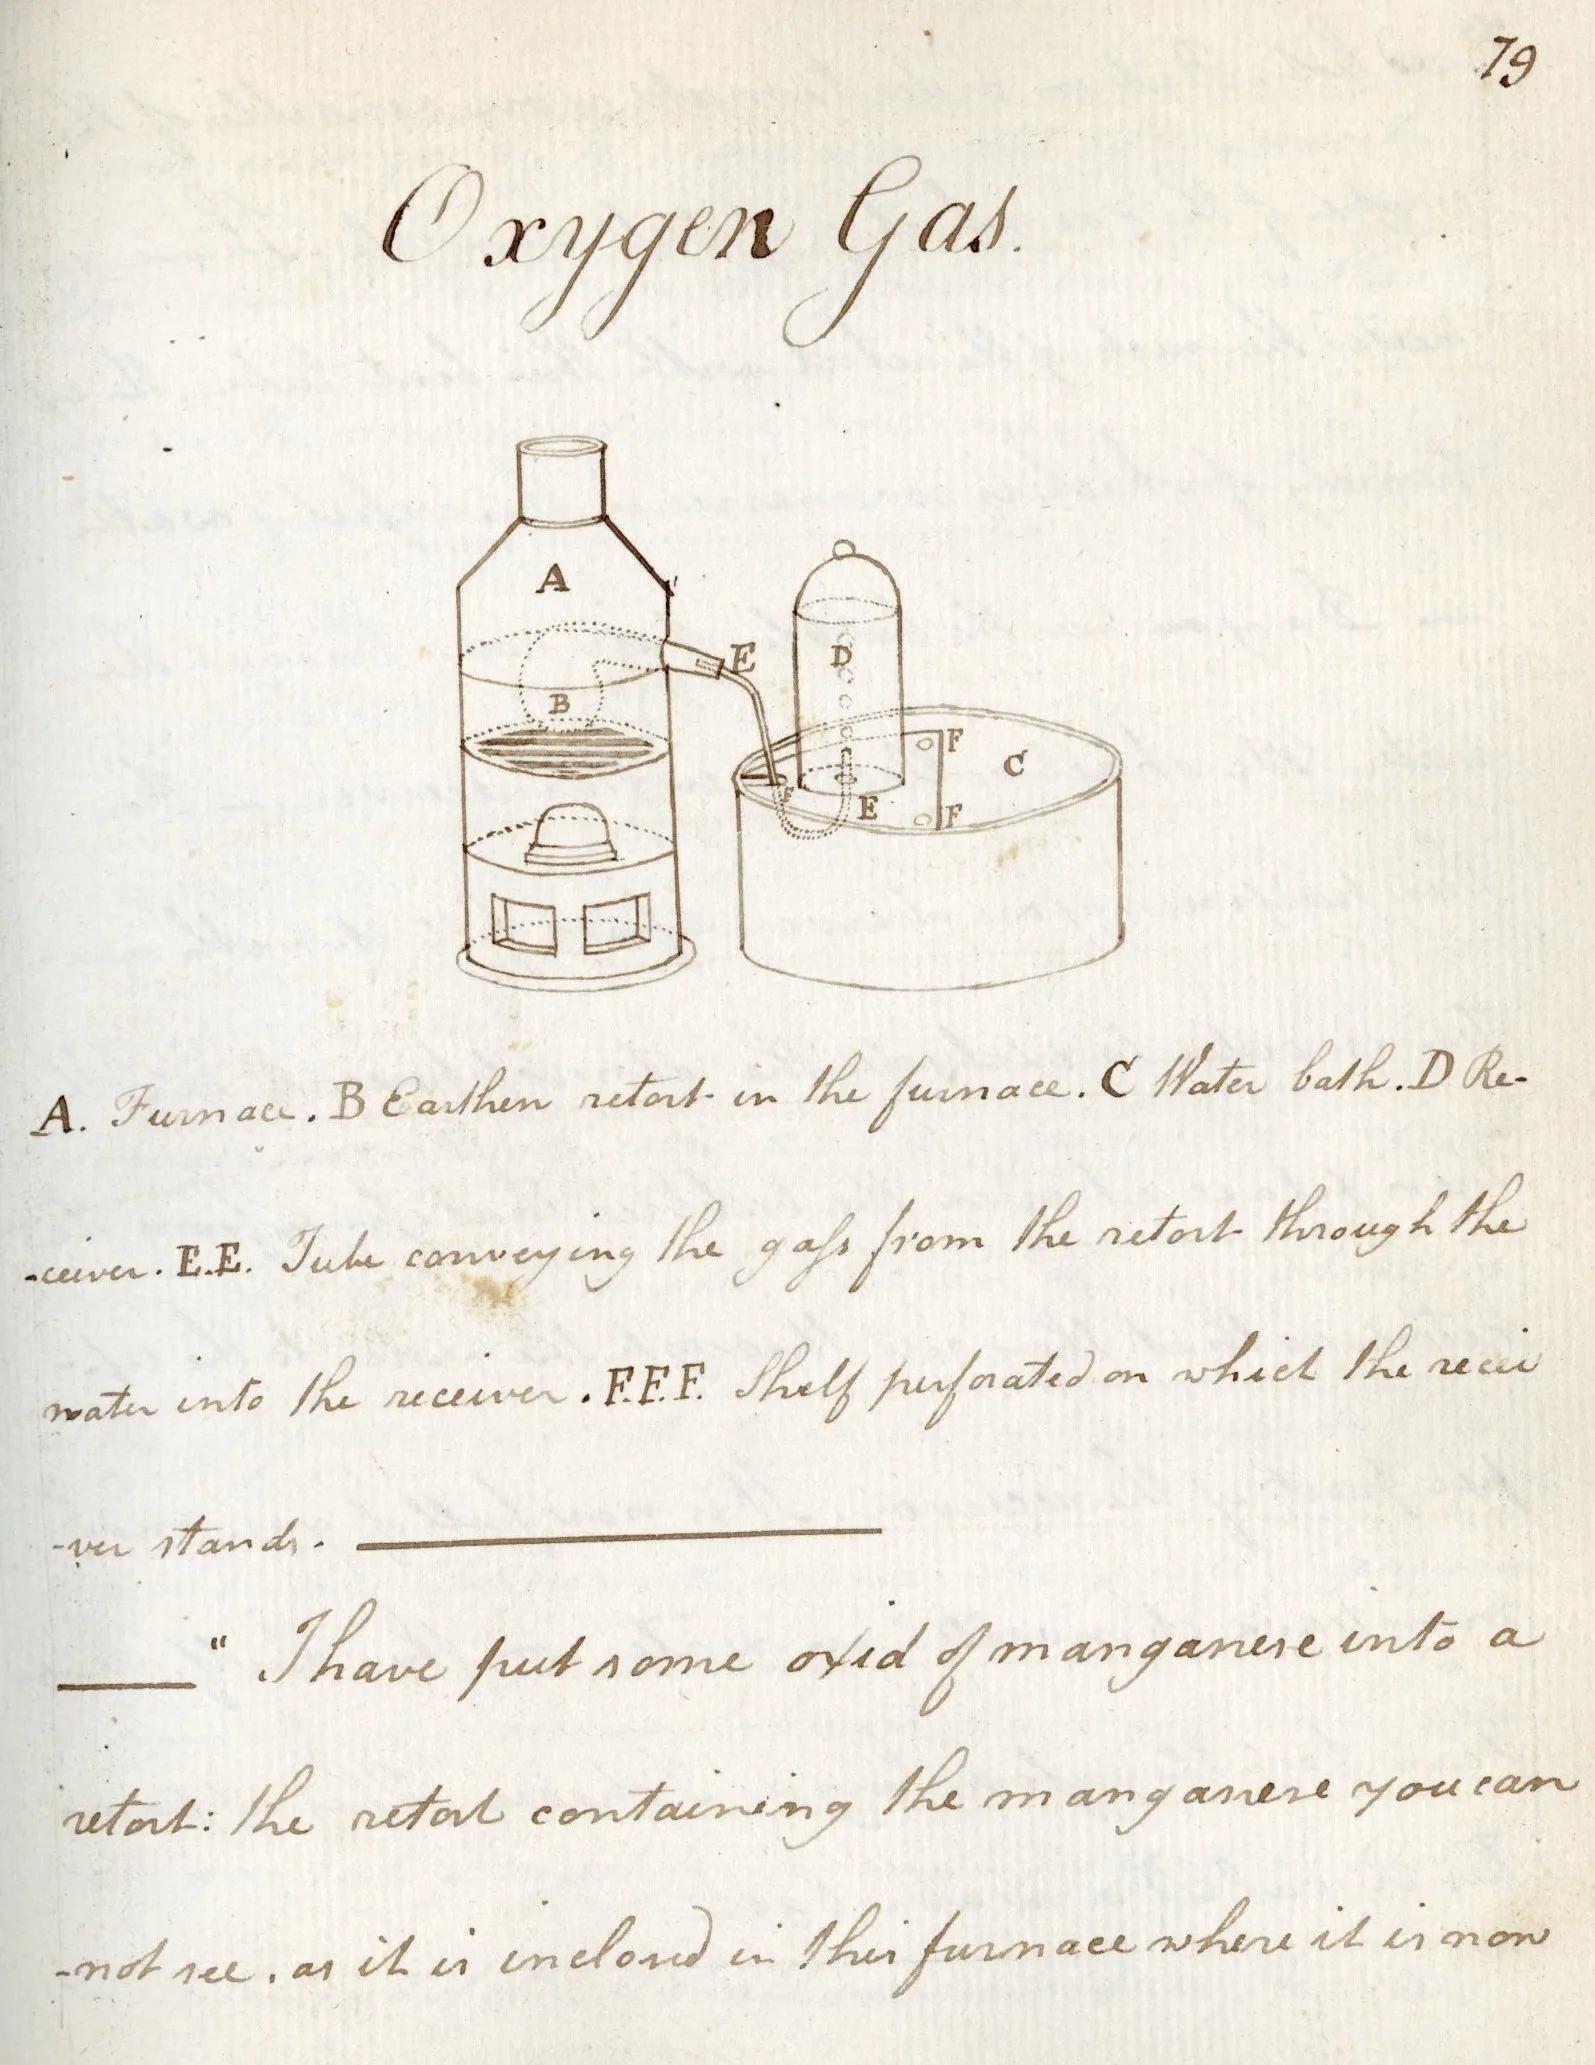 79
Oxygen Gas.
A
E
D
B
F
C
F
E
F
A. Furnace. B Earthen retort in the furnace. C Water bath. D Re-
-ceiver. E.E. Tube conveying the gass from the retort through the
water into the receiver. F.F.F. Shelf perforated on which the recei
-ver stands.
" I have put some oxid of manganese into a
retort: the retort containing the manganese you can
-not see, as it is inclosed in this furnace where it is now